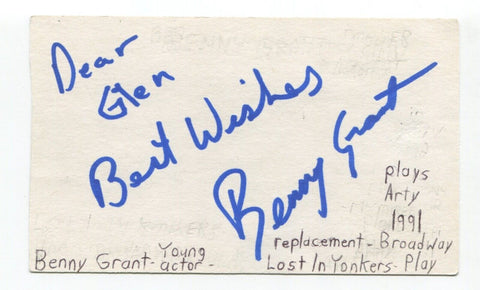 Dear
Glen
Best Wishes
Benny Grant
plays
Arty
1991
replacement - Broadway
Benny Grant - Young actor - Lost In Yonkers - Play